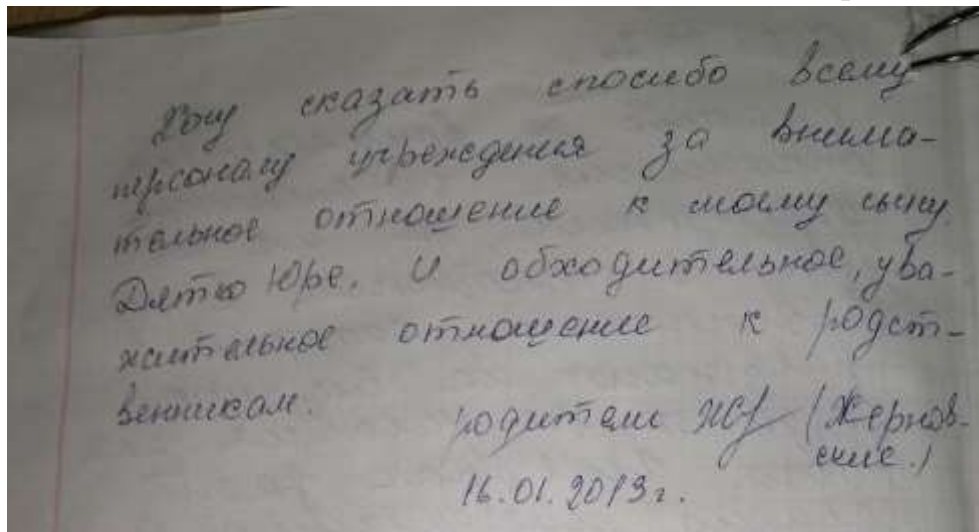 Хочу сказать спасибо всему
персоналу учреждения за внима-
тельное отношение к моему сыну
Дятко Юре. И обходительное, ува-
жительное отношение к родст-
венникам.
родители (Жернов-
ские.)
16.01.2013г.